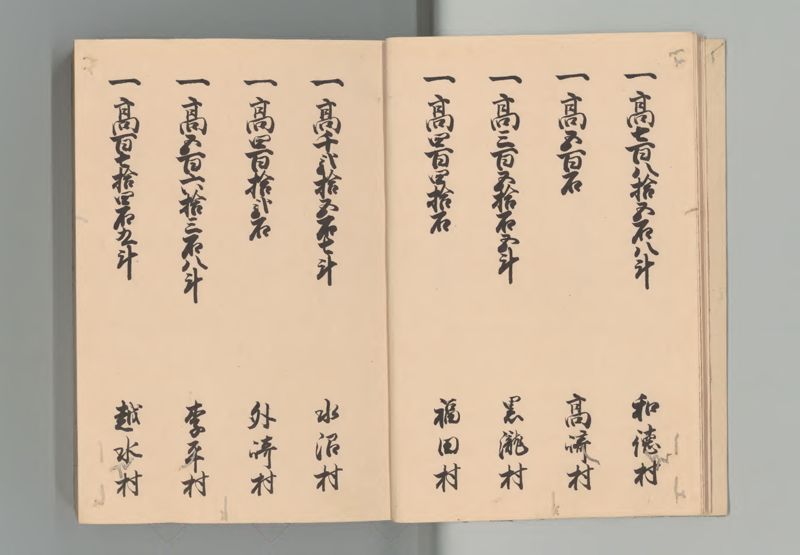 一 高七百八拾五石八斗 和徳村
一 高五百石 高崎村
一 高三百五拾石五斗 黒瀧村
一 高四百四拾石 福田村
一 高千弐拾五石七斗 水沼村
一 高四百拾弐石 外崎村
一 高五百六拾三石八斗 李平村
一 高百七拾四石九斗 越水村